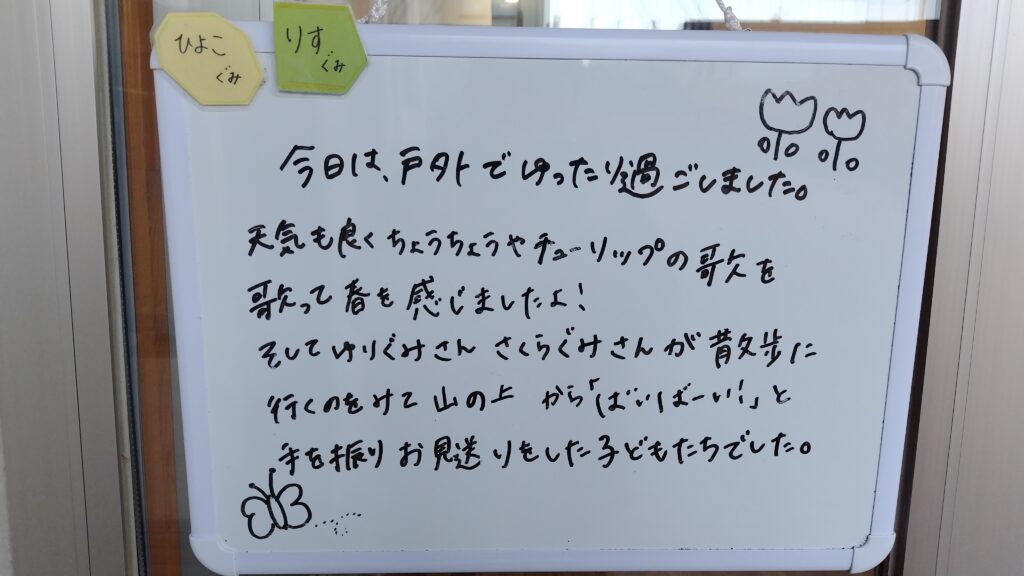 ひよこ
ぐみ
りす
ぐみ
今日は、戸外でゆったり過ごしました。
天気も良くちょうちょうやチューリップの歌を
歌って春を感じましたよ!
そしてゆりぐみさん さくらぐみさんが散歩に
行くのをみて山の上 から「ばいばーい!」と
手を振りお見送りをした子どもたちでした。